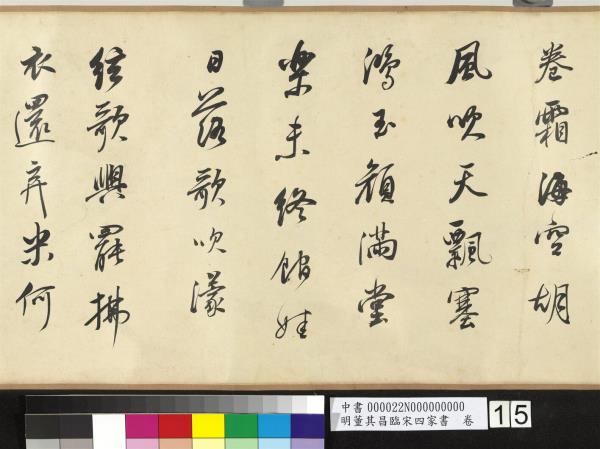 卷霜海空胡
風吹天飄塞
鴻玉顏滿堂
樂未終館娃
日落歌吹濛
絃歌興罷拂
衣還弃米何
中書 000022N000000000
明董其昌臨宋四家書 卷
15